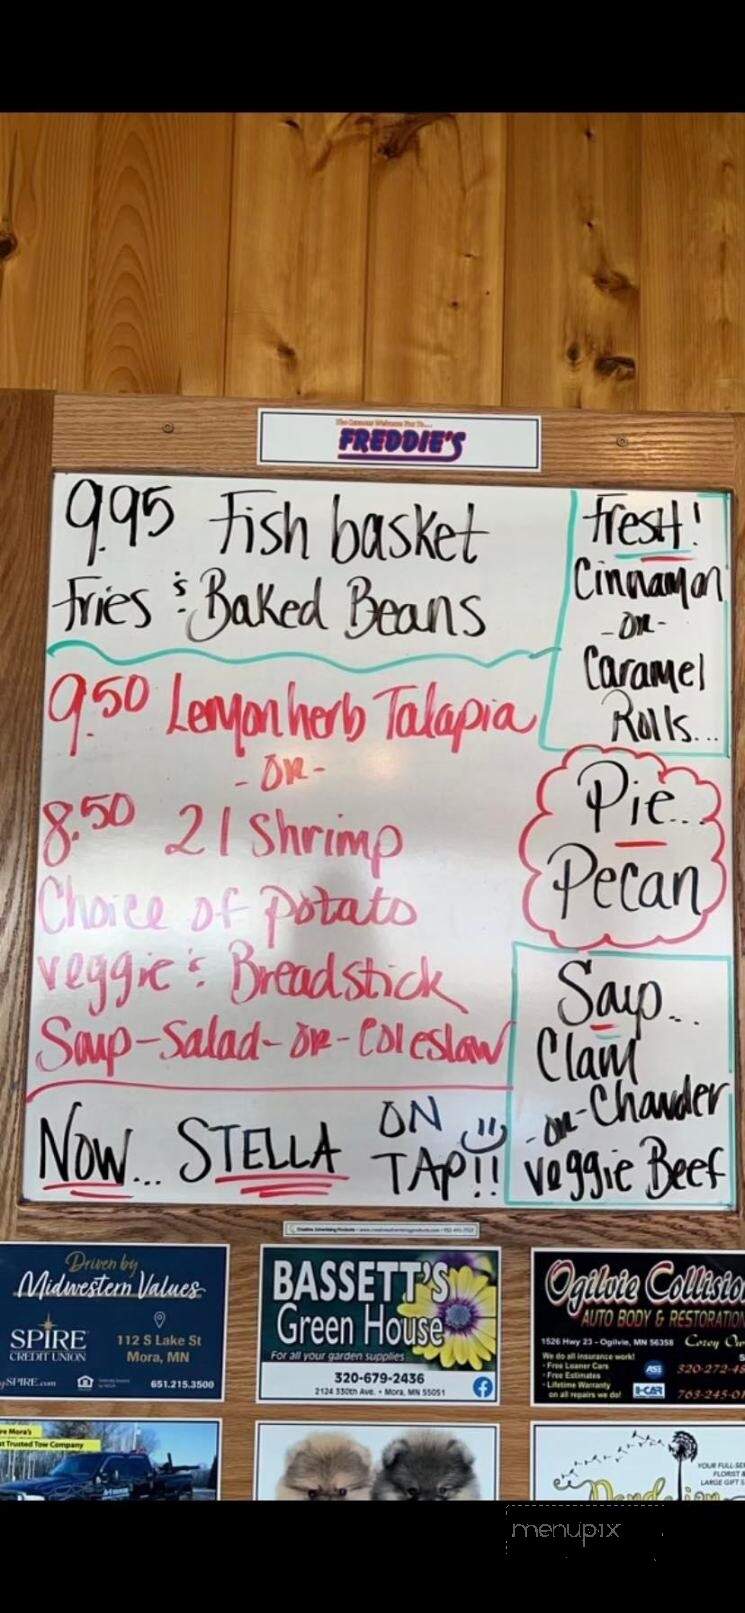 The Famous Welcome You To...
FREDDIE'S
9.95 Fish basket
Fries & Baked Beans
9.50 Lemonherb Talapia
-OR-
8.50 21 Shrimp
Choice of Potato
Veggie & Breadstick
Soup-Salad-OR-Coleslaw
NOW... STELLA ON TAP!!
Fresh!
Cinnamon
-OR-
Caramel
Rolls...
Pie...
Pecan
Soup...
Clam
Chowder
-OR-
Veggie Beef
Driven by
Midwestern Values
SPIRE
CREDIT UNION
112 S Lake St
Mora, MN
SPIRE.com
651.215.3500
BASSETT'S
Green House
For all your garden supplies
320-679-2436
2124 330th Ave. • Mora, MN 55051
Ogilvie Collision
AUTO BODY & RESTORATION
1526 Hwy 23 - Ogilvie, MN 56358
Corey
We do all insurance work!
• Free Loaner Cars
• Free Estimates
• Lifetime Warranty
on all repairs we do!
ASE
I-CAR
320-272-48
763-245-01
re Mora's
t Trusted Tow Company
YOUR FULL-SE
FLORIST &
LARGE GIFT S
menupix